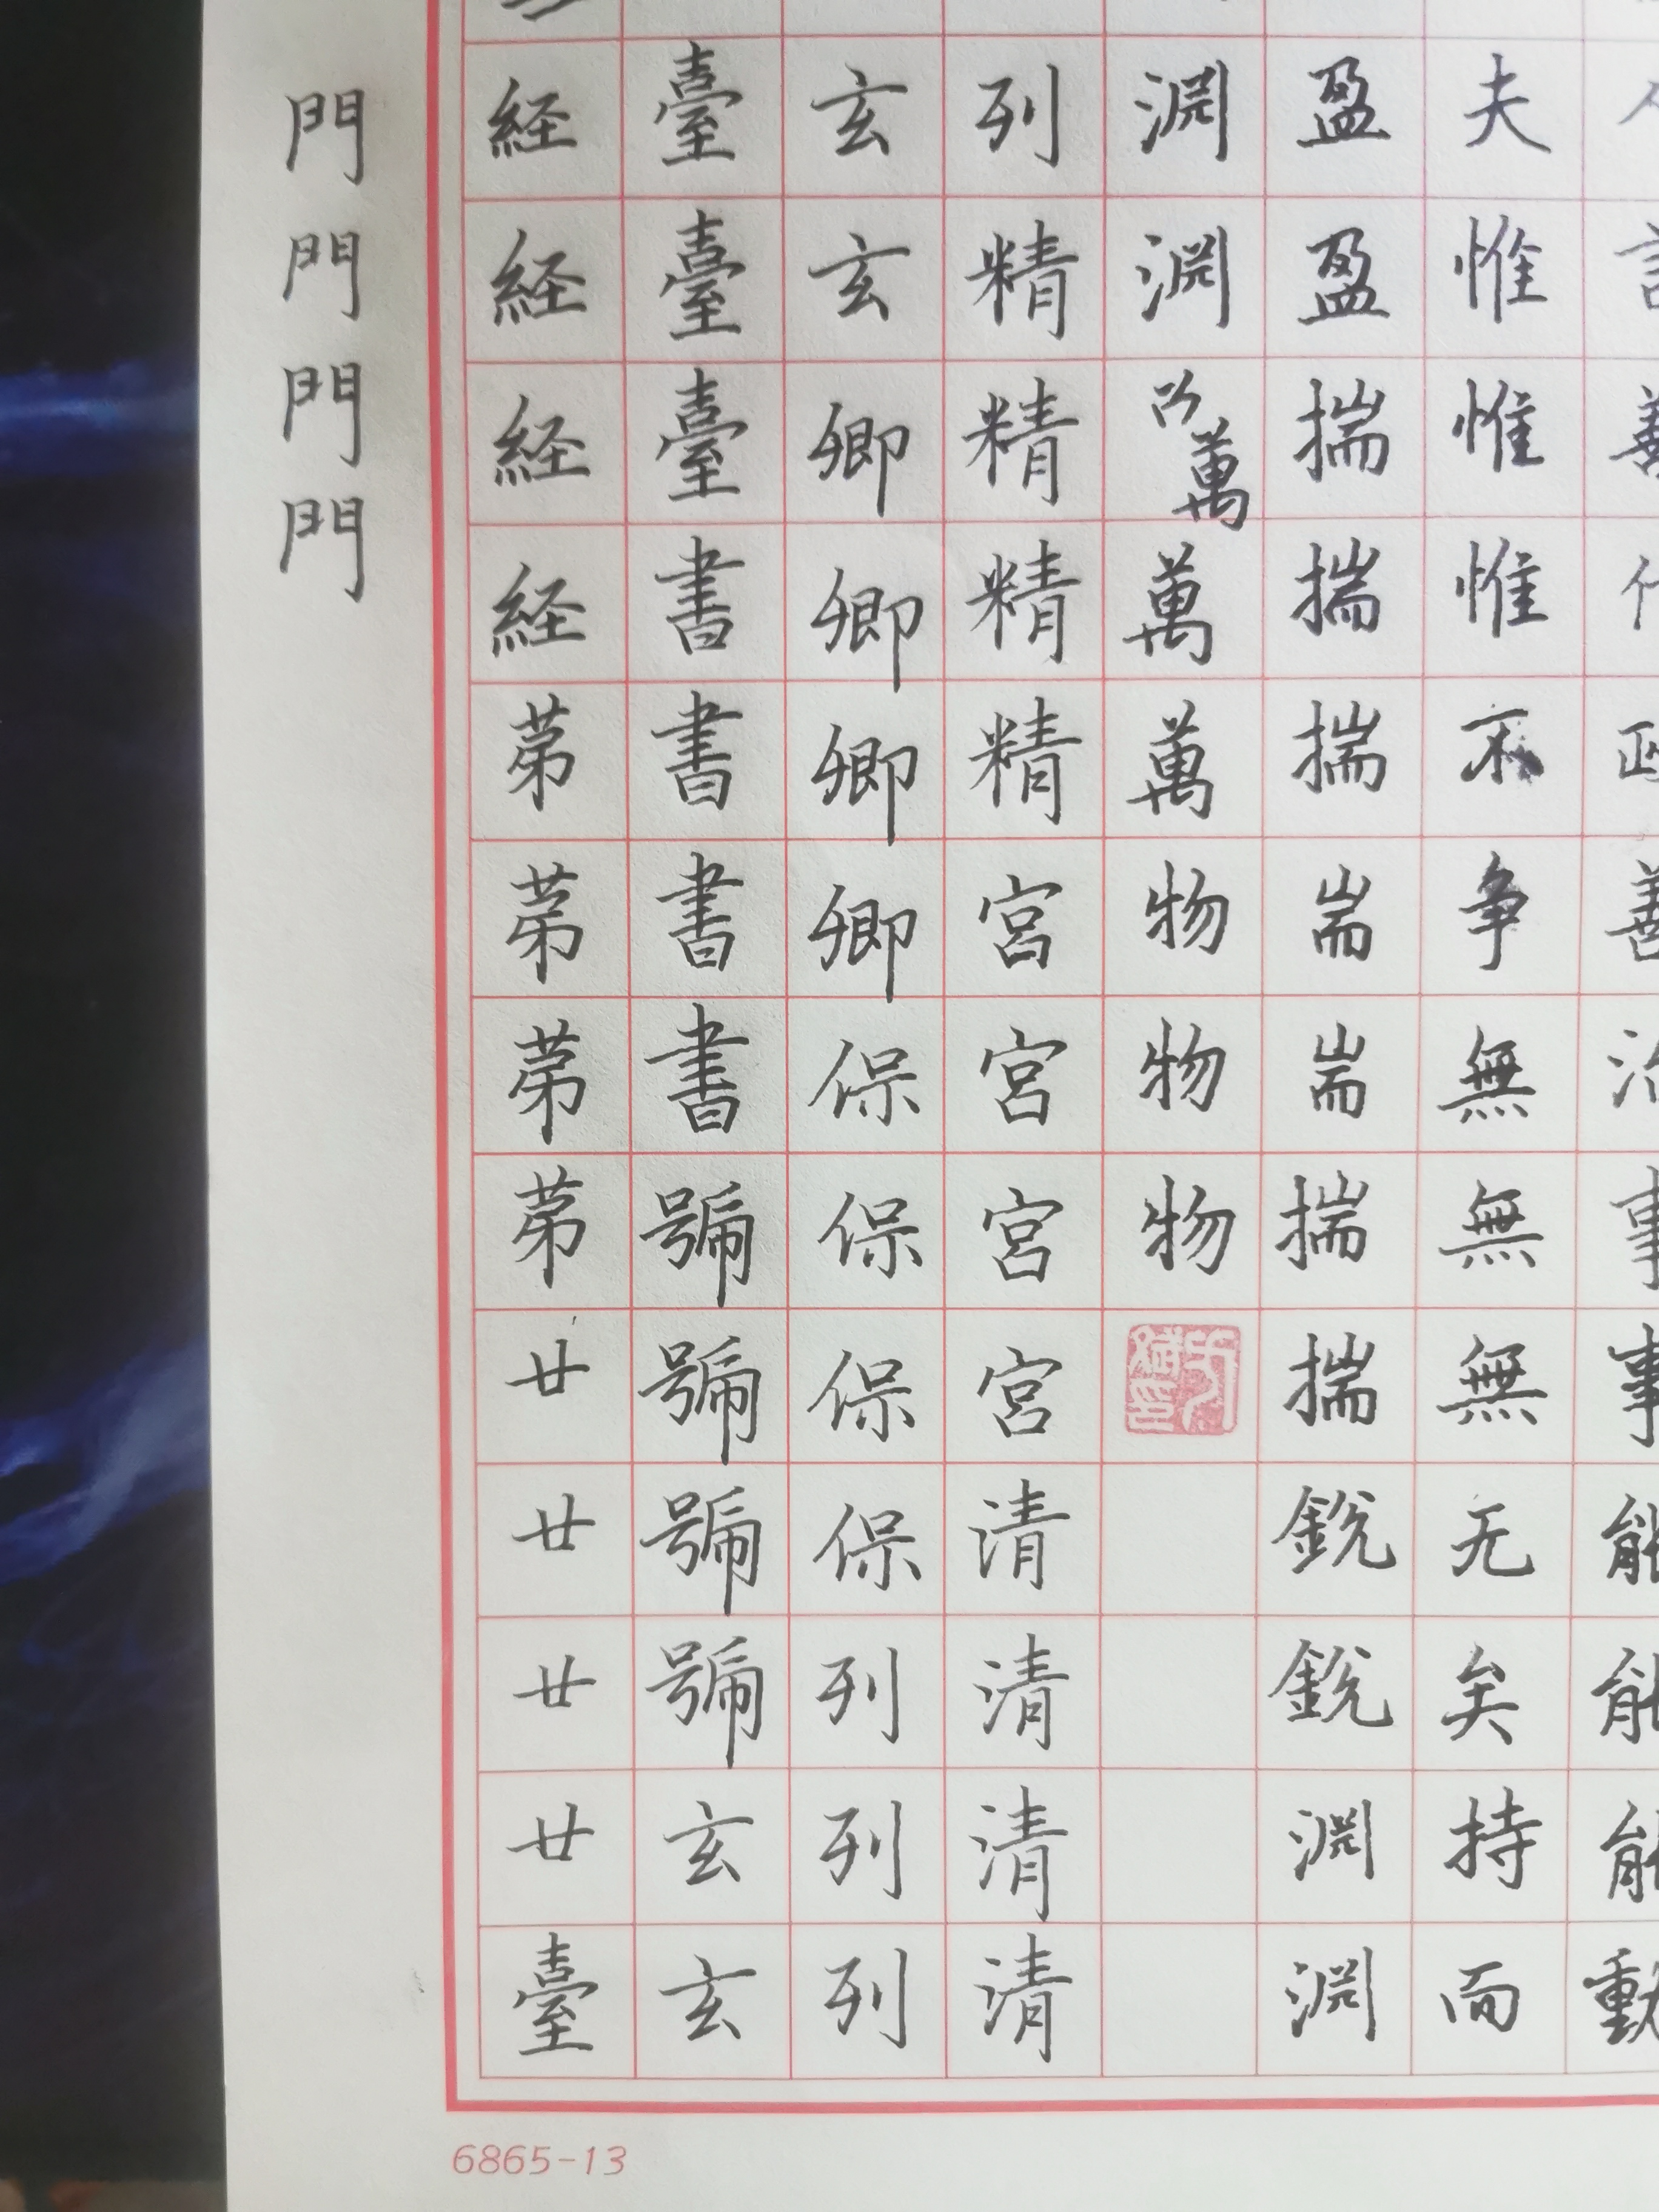 善善治事事能能能動
夫惟惟惟不争無無無无矣持而
盈盈揣揣揣耑耑揣揣鋭鋭淵淵
淵淵萬萬萬物物物
列精精精精宮宮宮宮清清清清
玄玄卿卿卿卿保保保保列列列
臺臺臺書書書書號號號號玄玄
経経経経苐苐苐苐廿廿廿廿臺
門門門門
6865-13